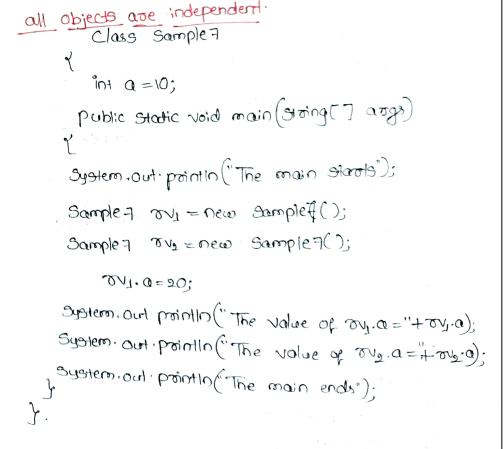 all objects are independent.
Class Sample7
{
int a=10;
public static void main(String[] args)
{
System.out.println("The main starts");
Sample7 rv1 = new Sample7();
Sample7 rv2 = new Sample7();
rv1.a=20;
System.out println("The value of rv1.a="+rv1.a);
System.out.println("The value of rv2.a="+rv2.a);
System.out.println("The main ends");
}
}.